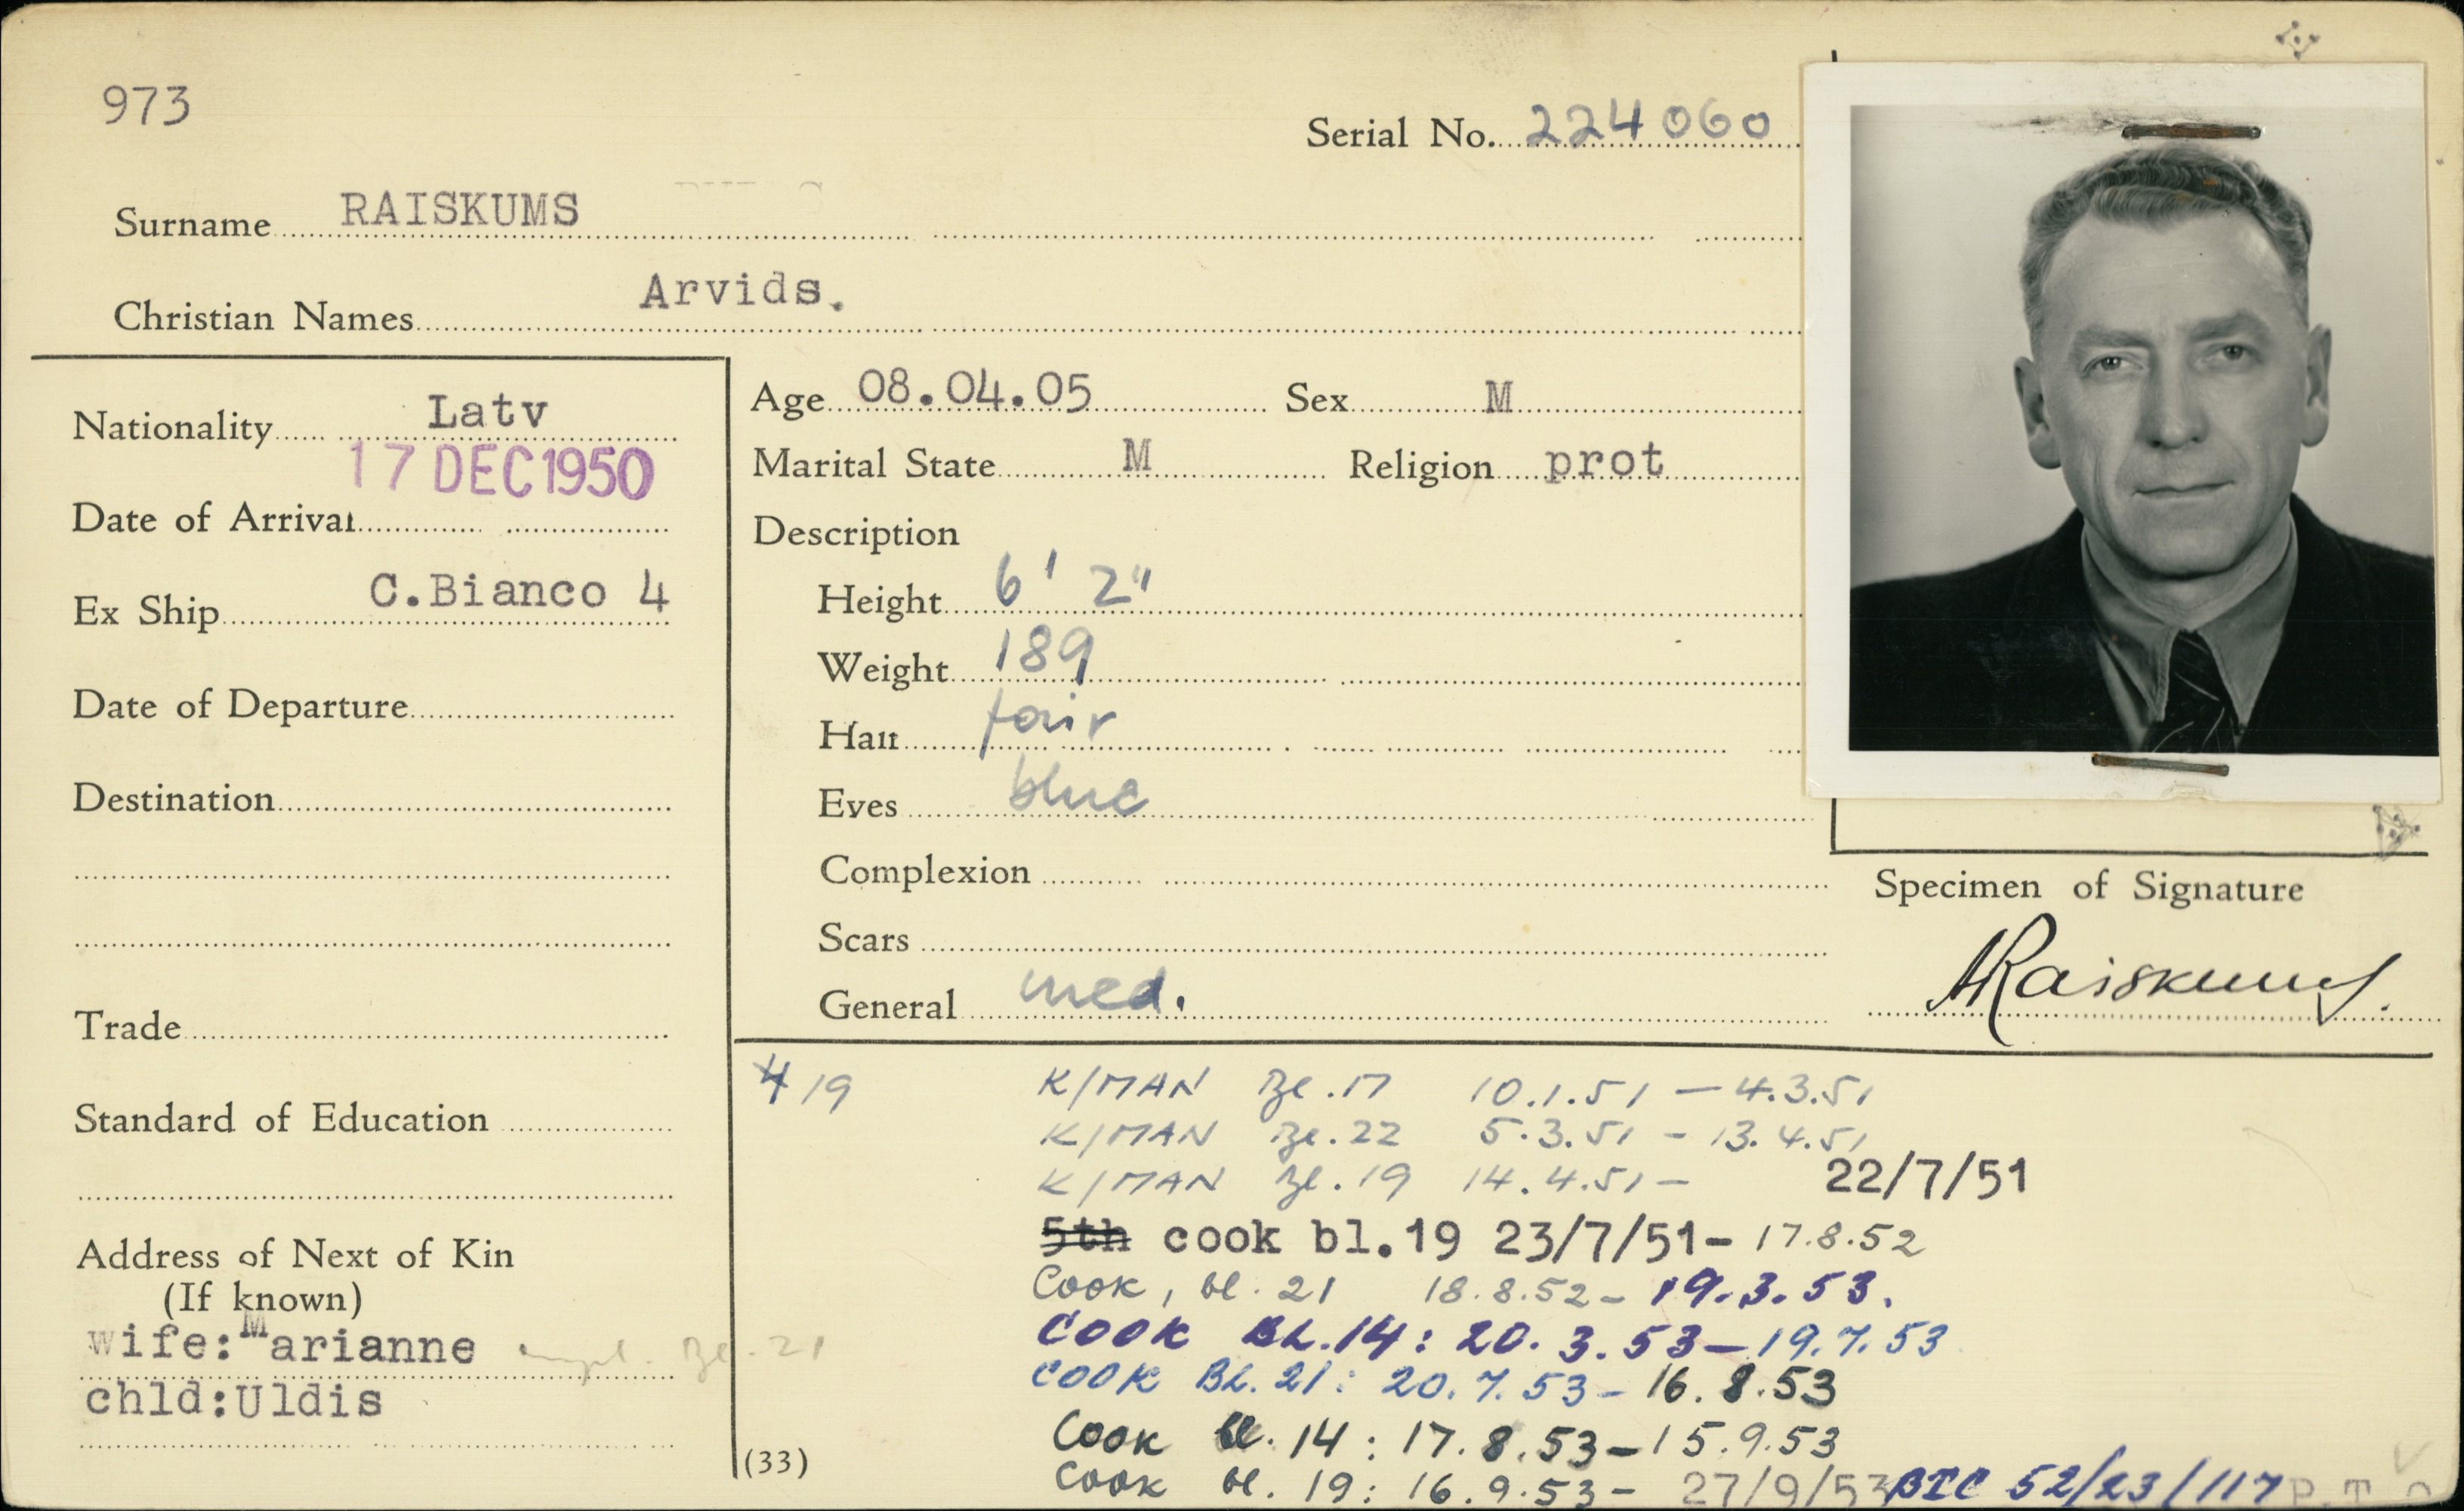 973
Serial No. 224060
Surname RAISKUMS
Christian Names Arvids.
Nationality Latv
17 DEC 1950
Date of Arrival
Ex Ship C.Bianco 4
Date of Departure
Destination
Trade
Standard of Education
Address of Next of Kin
(If known)
wife:Marianne Bl. 21
chld:Uldis
Age 08.04.05 Sex M
Marital State M Religion prot
Description
Height 6' 2"
Weight 189
Hair fair
Eyes blue
Complexion
Scars
General med.
Specimen of Signature
ARaiskums.
4/19
K/MAN Bl. 17 10.1.51 — 4.3.51
K/MAN Bl. 22 5.3.51 - 13.4.51
K/MAN Bl. 19 14.4.51 - 22/7/51
5th cook bl.19 23/7/51- 17.8.52
Cook, bl. 21 18.8.52- 19.3.53.
COOK BL.14: 20.3.53-19.7.53
COOK BL.21: 20.7.53- 16.8.53
Cook bl. 14: 17.8.53-15.9.53
Cook bl. 19: 16.9.53- 27/9/53 BIC 52/23/117 P T O
(33)